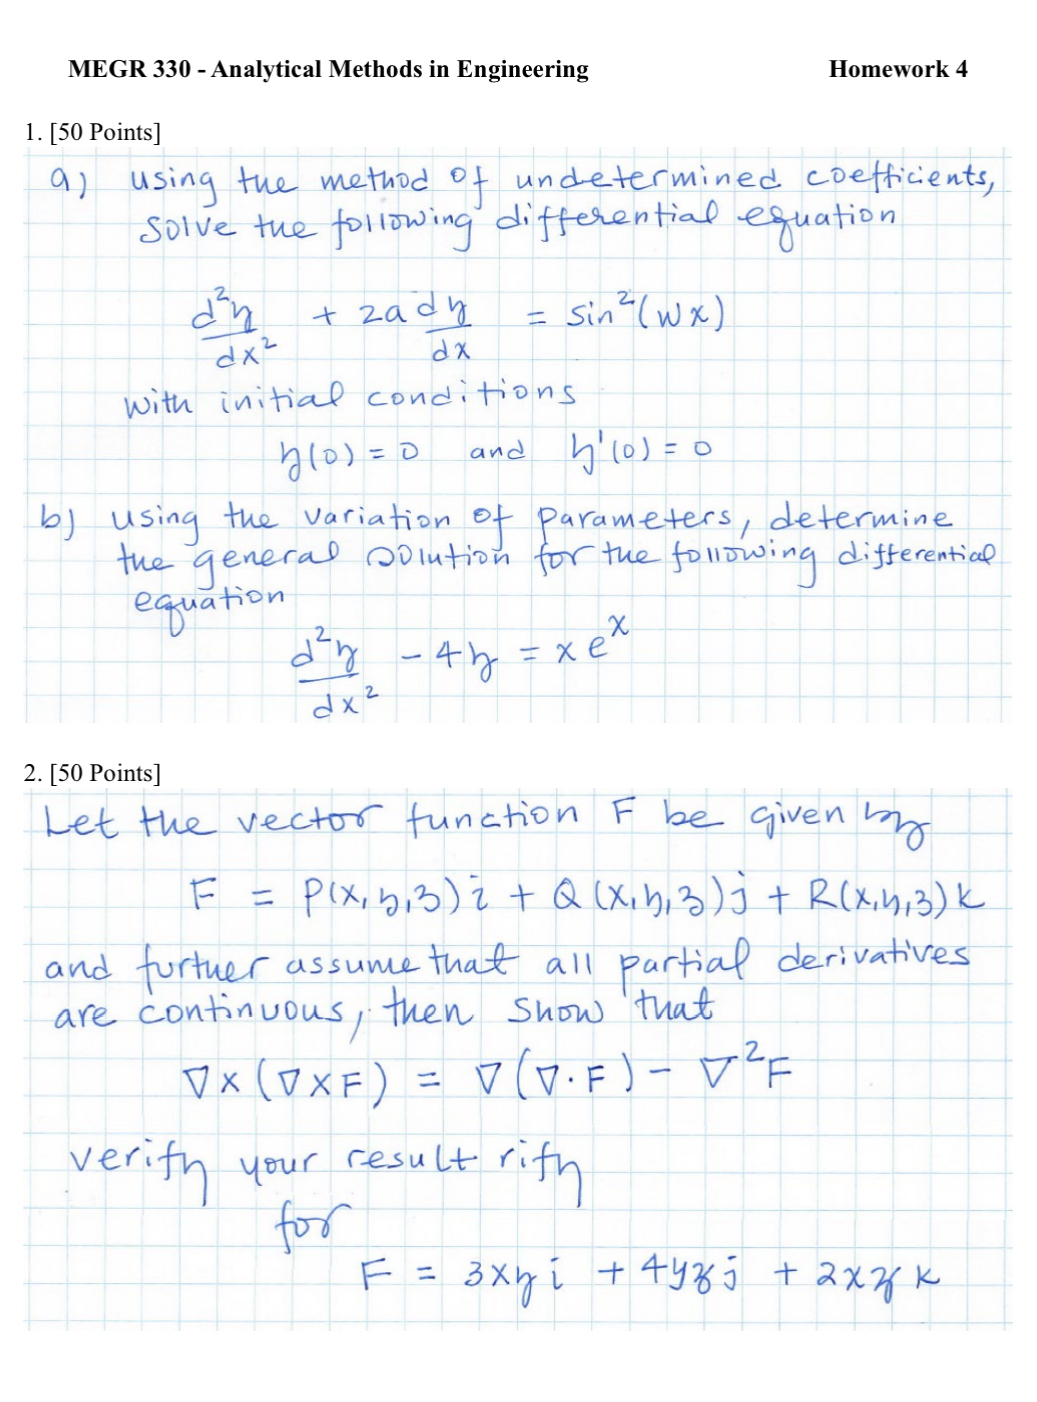 MEGR 330 - Analytical Methods in Engineering Homework 4
1. [50 Points]
a) using the method of undetermined coefficients,
solve the following differential equation
d²y/dx² + 2a dy/dx = sin²(wx)
with initial conditions
y(0) = 0 and y'(0) = 0
b) using the variation of parameters, determine
the general solution for the following differential
equation
d²y/dx² - 4y = xeˣ
2. [50 Points]
Let the vector function F be given by
F = P(x,y,z)i + Q(x,y,z)j + R(x,y,z)k
and further assume that all partial derivatives
are continuous, then show that
∇×(∇×F) = ∇(∇·F) - ∇²F
verify your result rify
for
F = 3xyi + 4yzj + 2xzk